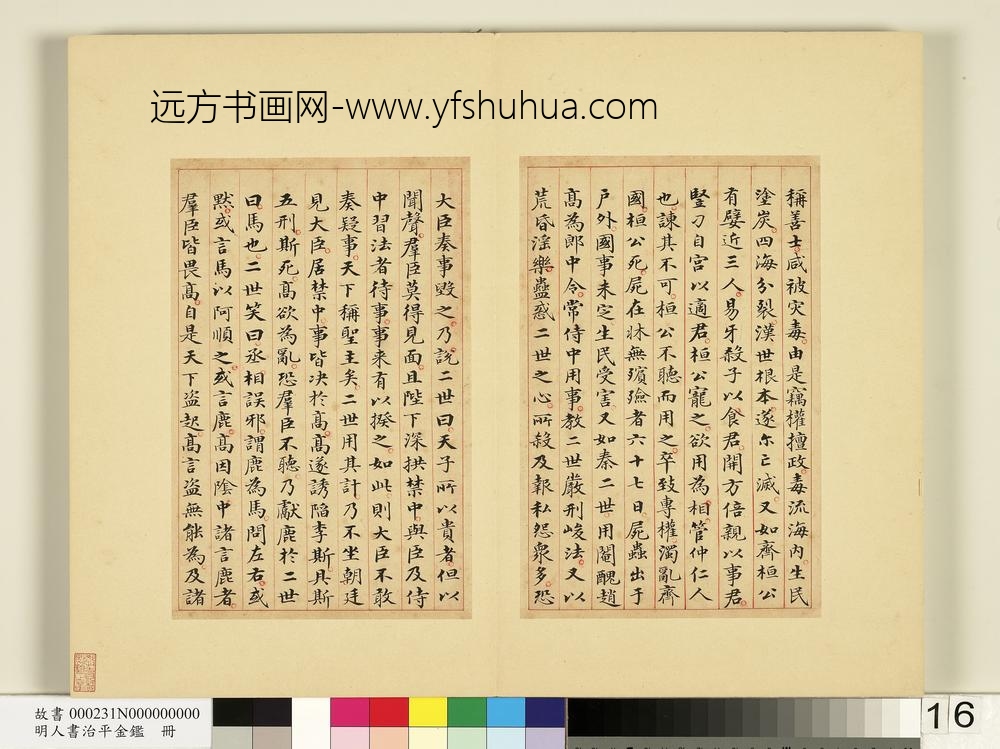 远方书画网-www.yfshuhua.com
稱善士咸被灾毒由是竊權擅政毒流海內生民
塗炭四海分裂漢世根本遂尓亡滅又如齊桓公
有嬖近三人易牙殺子以食君開方倍親以事君
豎刁自宮以適君桓公寵之欲用為相管仲仁人
也諫其不可桓公不聽而用之卒致專權濁亂齊
國桓公死屍在牀無殯殮者六十七日屍蟲出于
戶外國事未定生民受害又如秦二世用閹醜趙
高為郎中令常侍中用事教二世嚴刑峻法又以
荒昏淫樂蠱惑二世之心所殺及報私怨衆多恐
大臣奏事毀之乃說二世曰天子所以貴者但以
聞聲羣臣莫得見面且陛下深拱禁中與臣及侍
中習法者待事事来有以揆之如此則大臣不敢
奏疑事天下稱聖主矣二世用其計乃不坐朝廷
見大臣居禁中事皆决於高高遂誘陷李斯具斯
五刑斯死高欲為亂恐羣臣不聽乃獻鹿於二世
曰馬也二世笑曰丞相誤邪謂鹿為馬問左右或
默或言馬以阿順之或言鹿高因陰中諸言鹿者
羣臣皆畏高自是天下盜起高言盜無能為及諸
故書 000231N000000000
明人書治平金鑑 冊
16